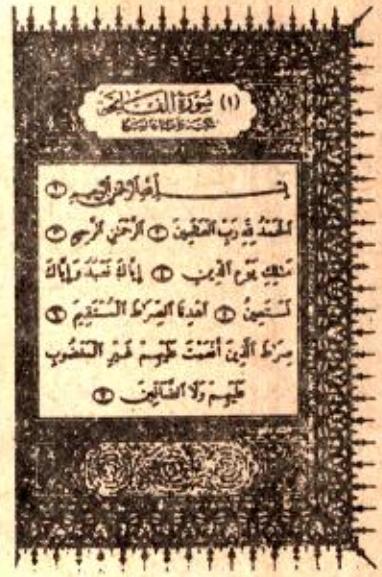 (١) سُورَةُ الْفَاتِحَةِ
بِسْمِ اللَّهِ الرَّحْمَٰنِ الرَّحِيمِ ۝١
الْحَمْدُ لِلَّهِ رَبِّ الْعَٰلَمِينَ ۝ الرَّحْمَٰنِ الرَّحِيمِ ۝
مَٰلِكِ يَوْمِ الدِّينِ ۝ إِيَّاكَ نَعْبُدُ وَإِيَّاكَ
نَسْتَعِينُ ۝ اهْدِنَا الصِّرَٰطَ الْمُسْتَقِيمَ ۝
صِرَٰطَ الَّذِينَ أَنْعَمْتَ عَلَيْهِمْ غَيْرِ الْمَغْضُوبِ
عَلَيْهِمْ وَلَا الضَّالِّينَ ۝